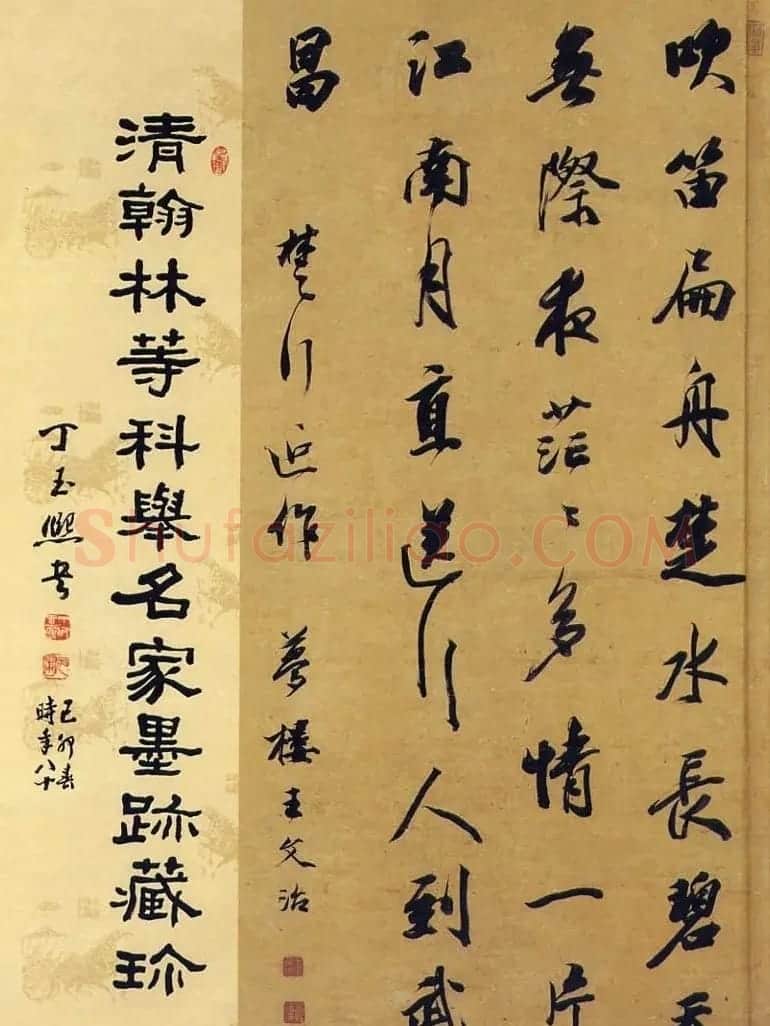 吹笛扁舟楚水長碧天
無際夜茫〻多情一片
江南月直送行人到武
昌 楚行近作 夢樓王文治
清翰林等科舉名家墨跡藏珍
丁玉熙書
己卯春
時年八十
Shufaziliao.COM